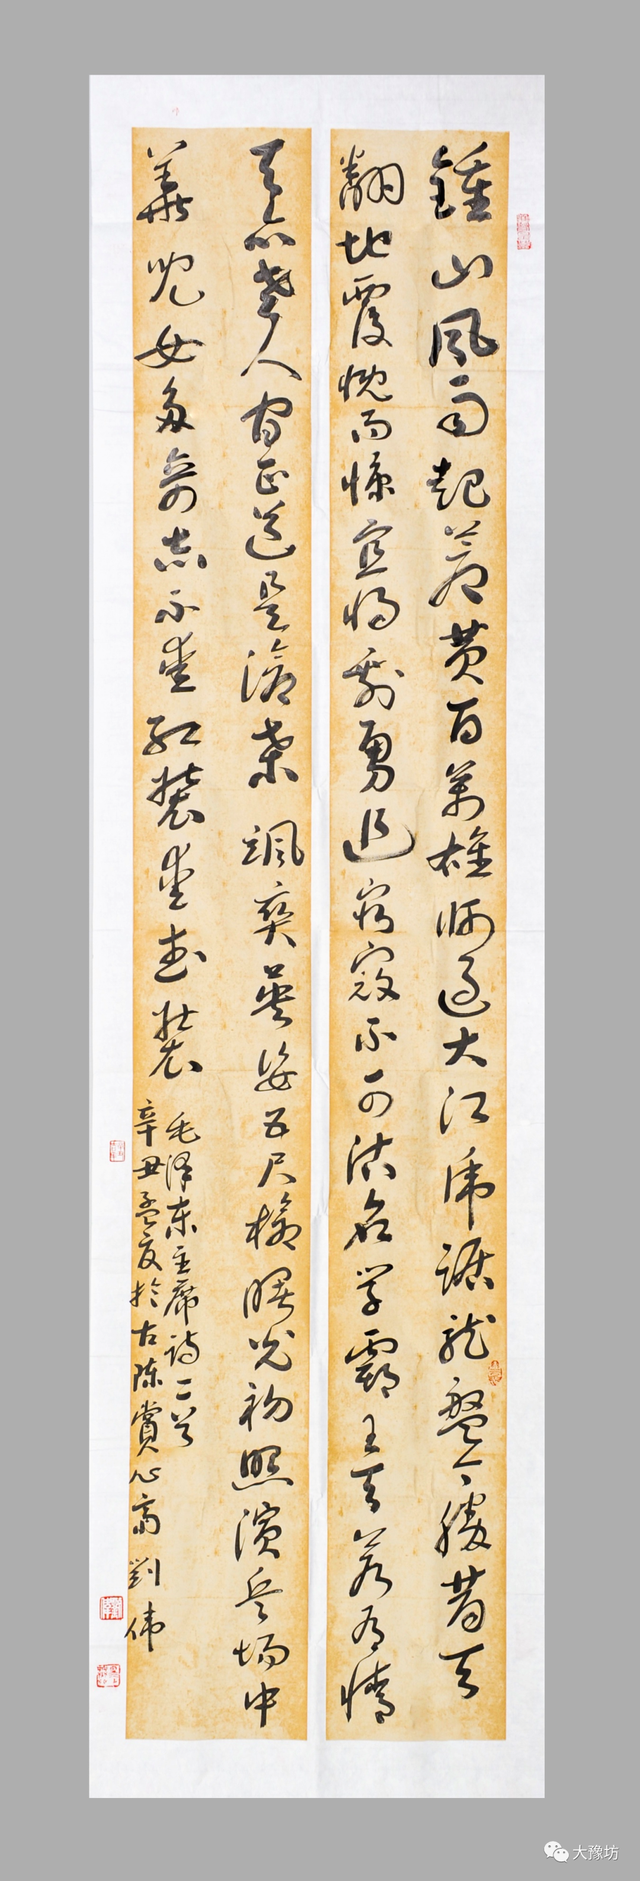 鍾山風雨起蒼黄百萬雄師過大江虎踞龍盤今勝昔天
翻地覆慨而慷宜将剩勇追窮寇不可沽名学霸王天若有情
天亦老人間正道是滄桑颯爽英姿五尺槍曙光初照演兵場中
華兒女多奇志不愛紅裝愛武裝
毛泽东主席诗二首
辛丑孟夏於古陈賞心齋劉偉
大豫坊